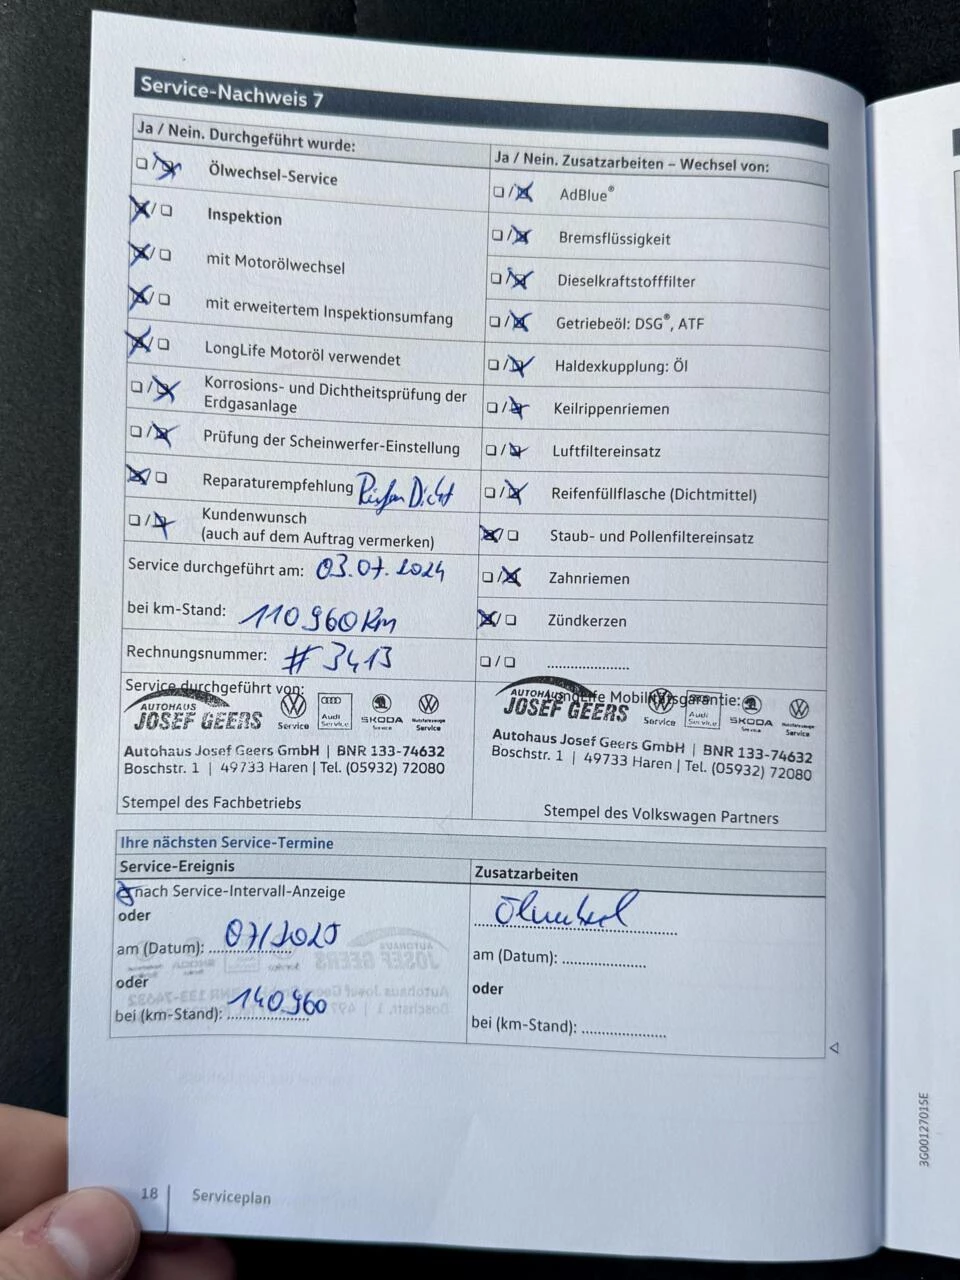 Service-Nachweis 7
Ja / Nein. Durchgeführt wurde:
Ölwechsel-Service
Inspektion
mit Motorölwechsel
mit erweitertem Inspektionsumfang
LongLife Motoröl verwendet
Korrosions- und Dichtheitsprüfung der
Erdgasanlage
Prüfung der Scheinwerfer-Einstellung
Reparaturempfehlung Reifen Dicht
Kundenwunsch
(auch auf dem Auftrag vermerken)
Service durchgeführt am: 03.07.2024
bei km-Stand: 110960 Km
Rechnungsnummer: #3413
Service durchgeführt von:
AUTOHAUS
JOSEF GEERS
Service
Audi
Service
SKODA
Service
Nutzfahrzeuge
Service
Autohaus Josef Geers GmbH | BNR 133-74632
Boschstr. 1 | 49733 Haren | Tel. (05932) 72080
Stempel des Fachbetriebs
Ja / Nein. Zusatzarbeiten – Wechsel von:
AdBlue®
Bremsflüssigkeit
Dieselkraftstofffilter
Getriebeöl: DSG®, ATF
Haldexkupplung: Öl
Keilrippenriemen
Luftfiltereinsatz
Reifenfüllflasche (Dichtmittel)
Staub- und Pollenfiltereinsatz
Zahnriemen
Zündkerzen
LongLife Mobilitätsgarantie:
AUTOHAUS
JOSEF GEERS
Service
Audi
Service
SKODA
Service
Nutzfahrzeuge
Service
Autohaus Josef Geers GmbH | BNR 133-74632
Boschstr. 1 | 49733 Haren | Tel. (05932) 72080
Stempel des Volkswagen Partners
Ihre nächsten Service-Termine
Service-Ereignis
nach Service-Intervall-Anzeige
oder
am (Datum): 07/2025
oder
bei (km-Stand): 140960
Zusatzarbeiten
Ölwechsel
am (Datum):
oder
bei (km-Stand):
18 Serviceplan
3G0012701SE